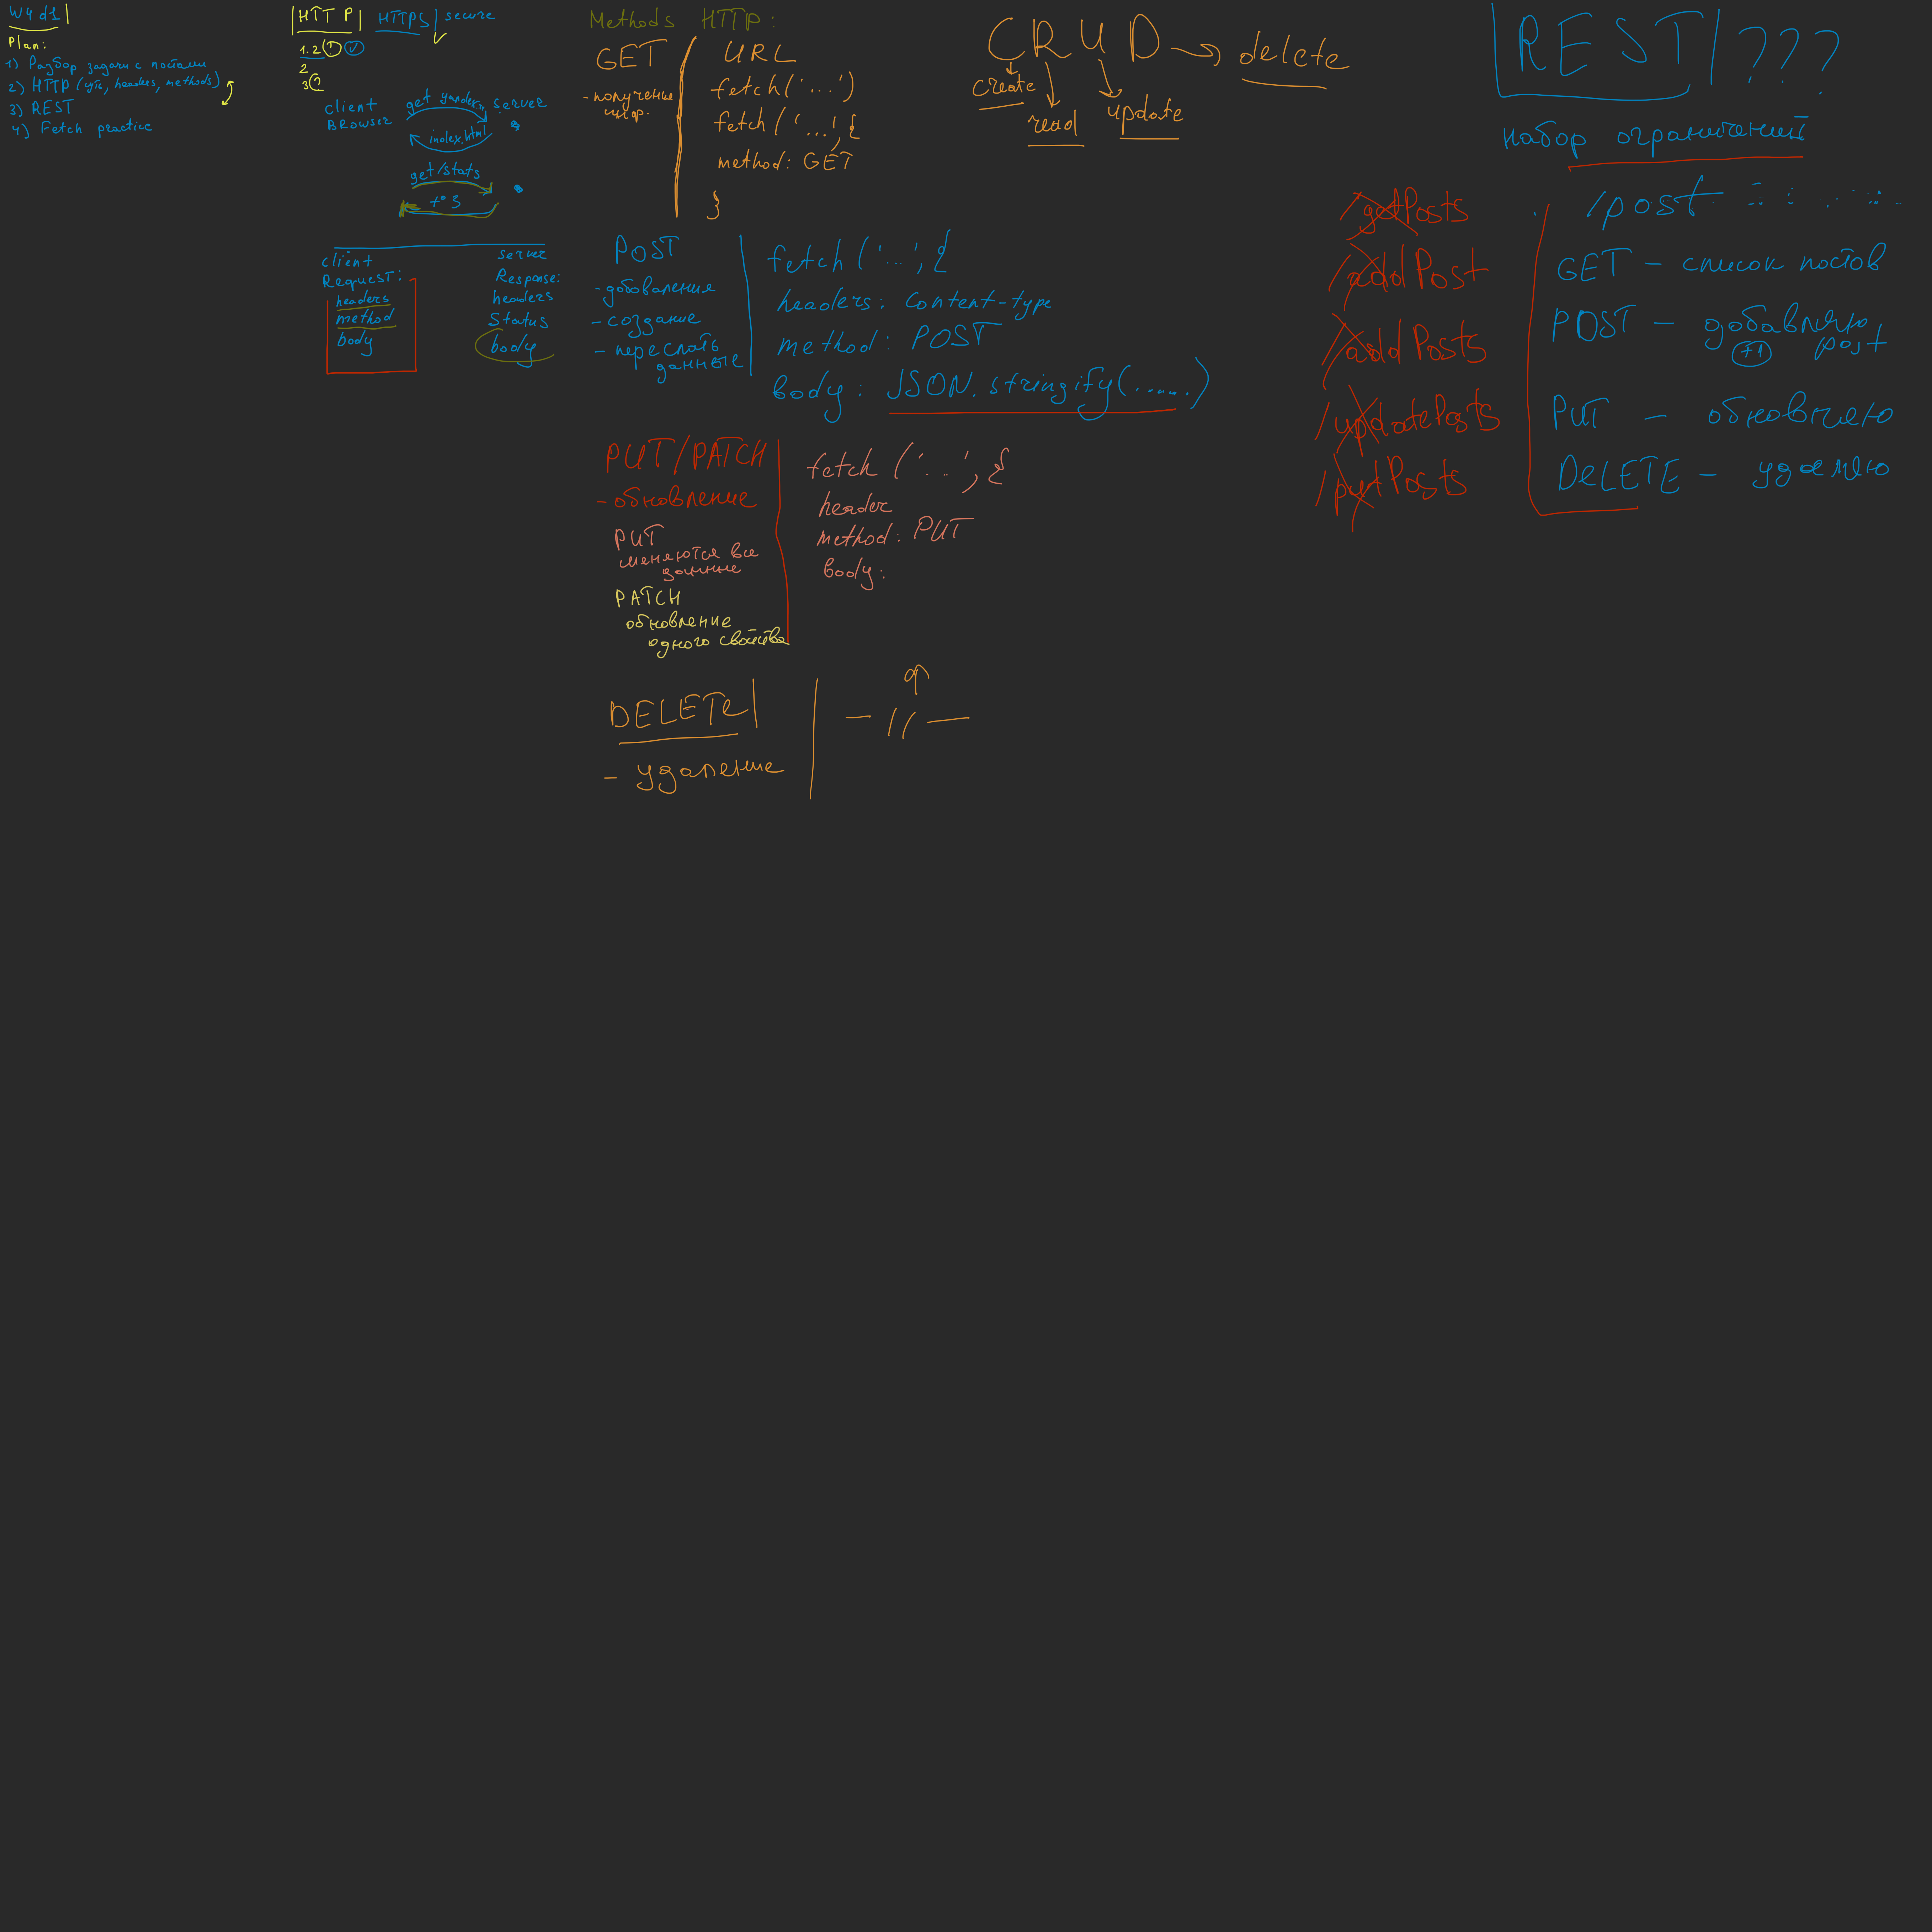 W4 d1
Plan:
1) Разбор задачи с постами
2) HTTP (url, headers, methods)
3) REST
4) Fetch practice
HTTP HTTPS secure
1.2 1
2
3 2
client
BROWSER
get yandex.ru
server
index.html
get/stats
t° 3
client
Request:
headers
method
body
server
Response:
headers
Status
body
Methods HTTP:
GET
-получение
инфор.
URL
fetch('...')
fetch('...', {
method: GET
}
POST
-добавление
-создание
-переслать
данные
fetch('...', {
headers: Content-type
method: POST
body: JSON.stringify(......)
PUT/PATCH
-обновление
PUT
меняются все
данные
PATCH
обновление
одного свойства
fetch('...', {
header
method: PUT
body:
DELETE
- удаление
— // —
CRUD → delete
create
read
update
REST ???
набор ограничений
/getPosts
/addPost
/addPosts
/updatePosts
/putPosts
/post
GET — список постов
POST — добавляю
+1 post
PUT — обновляю
DELETE — удаляю